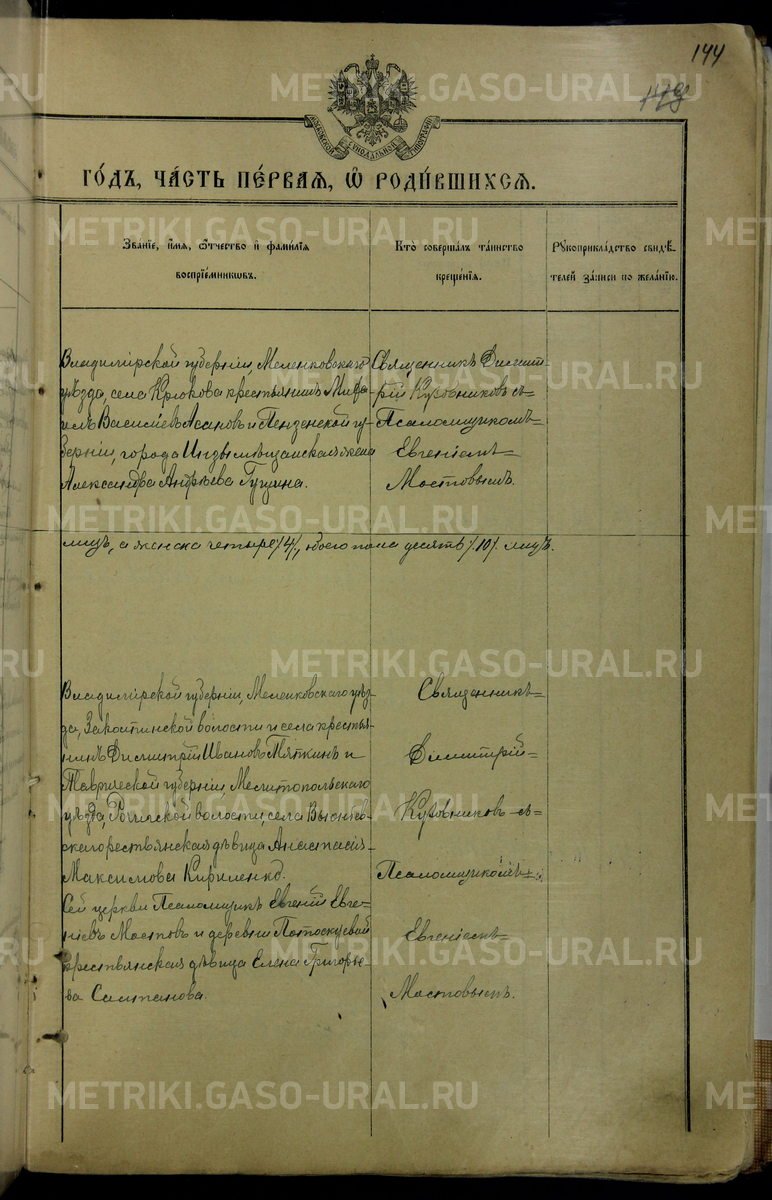 144
ГО́ДЪ, ЧА́СТЬ ПЕ́РВАЯ, Ѡ РОДИ́ВШИХСЯ.
Зва́нїе, и́мя, ѻ́тчество и фами́лїя
воспрїе́мникѡвъ.
Кто̀ соверша́лъ та́инство
креще́нїя.
Рꙋкоприкла́дство свидѣ́-
телей за́писи по жела́нїю.
Владимірской губерніи, Меленковскаго
уѣзда, села Крюкова крестьянинъ Миха-
илъ Васильевъ Асановъ и Пензенской гу-
берніи, города мѣщанская жена
Александра Андреева Гущина.
Священникъ Димит-
рій Куровниковъ съ
Псаломщикомъ
Евгеніемъ
Мостовымъ.
лицъ, а женска четыре /4/, обоего пола десять /10/ лицъ.
Владимірской губерніи, Меленковскаго уѣз-
да, волости и села кресть-
янинъ Димитрій Ивановъ и
Таврической губерніи, Мелитопольскаго
уѣзда, волости, села
крестьянская дѣвица Анастасія
Максимова Кириленко.
Сей церкви Псаломщикъ Евгеній Евге-
ніевъ Мостовъ и деревни Потоскуевой
крестьянская дѣвица Елена Григорье-
ва
Священникъ
Димитрій
Куровниковъ съ
Псаломщикомъ
Евгеніемъ
Мостовымъ.
METRIKI.GASO-URAL.RU